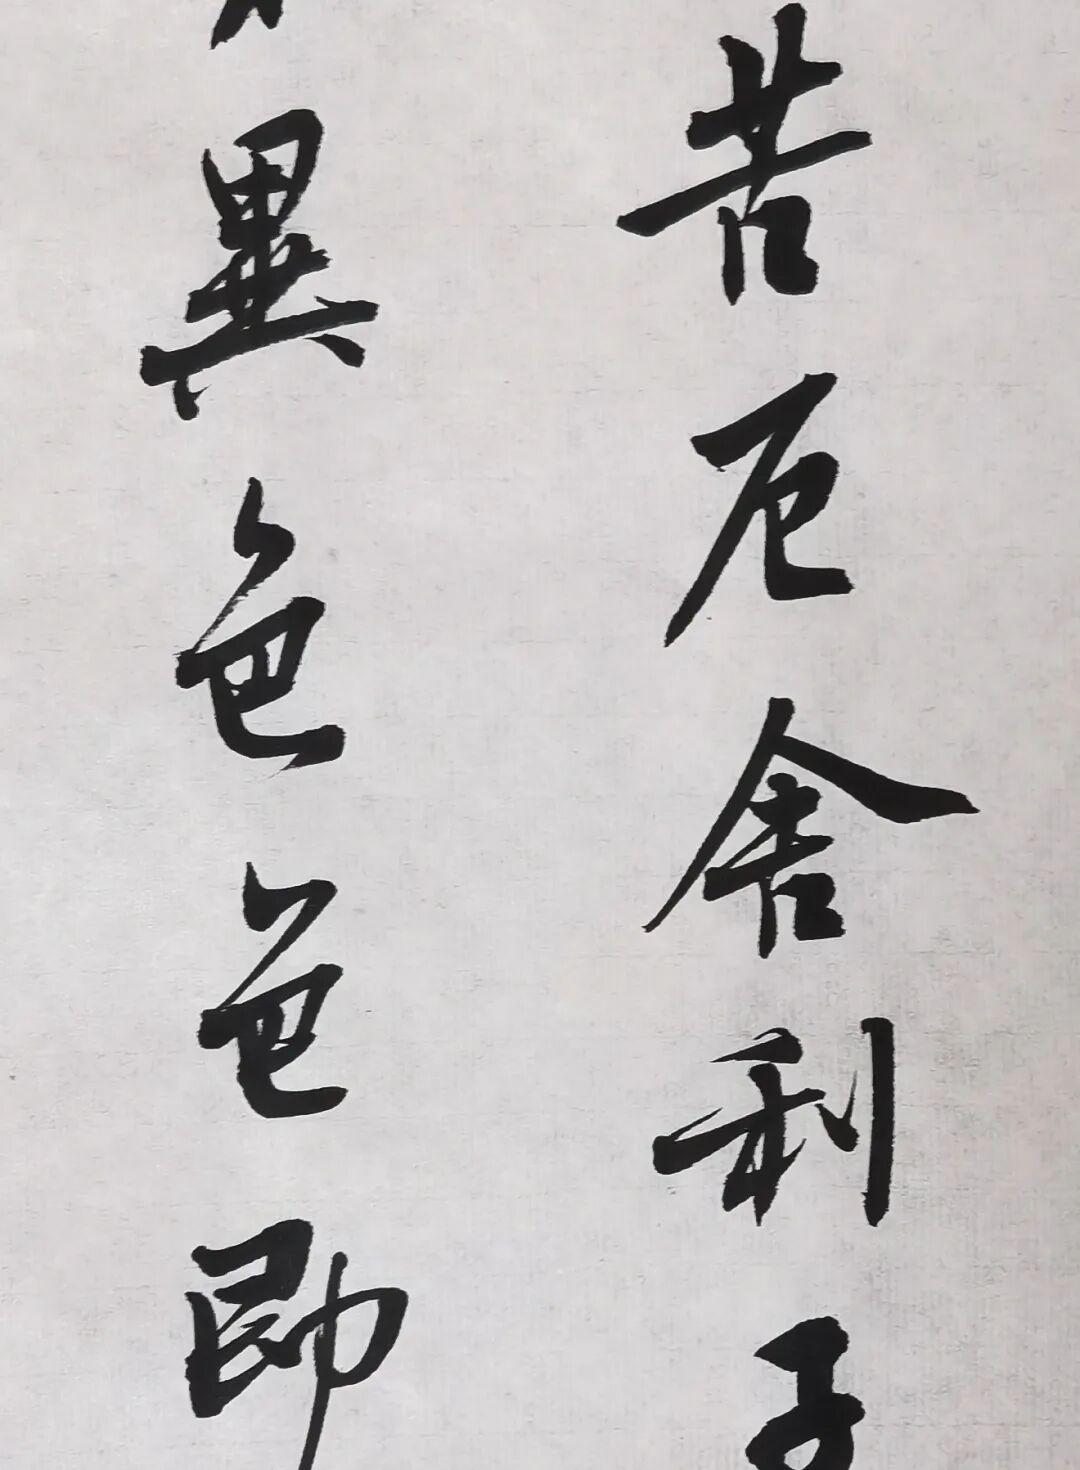 苦厄舍利子
異色色即